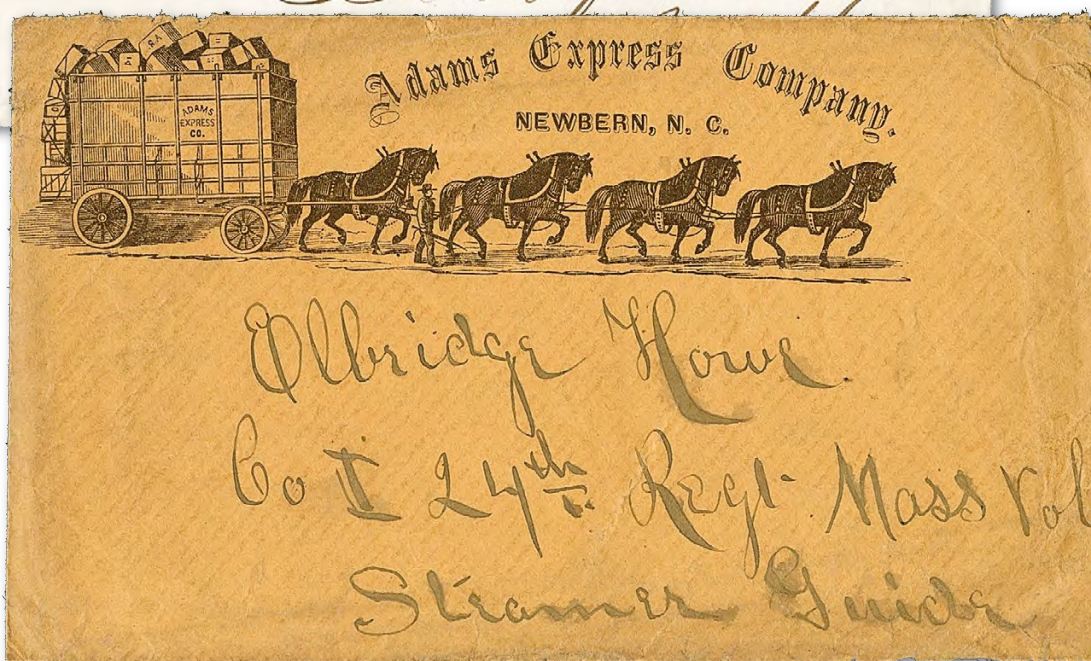 Adams Express Company.
NEWBERN, N. C.
ADAMS
EXPRESS
CO.
Elbridge Howe
Co I 24th Regt. Mass Vol
Steamer Guide